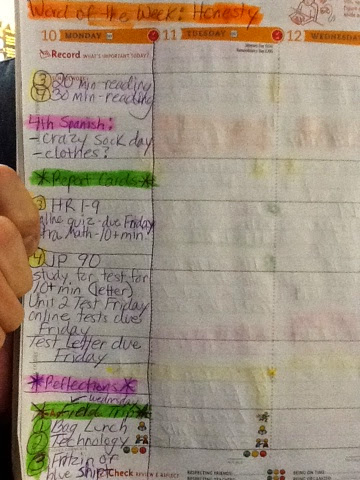 Word of the Week: Honesty
10 MONDAY
11 TUESDAY
12 WEDNESDAY
Record WHAT'S IMPORTANT TODAY?
3 20 min-reading
30 min-reading
4th Spanish:
-crazy sock day
-clothes?
*Report Cards*
HR 1-9
online quiz-due Friday
Math-10+min!
4 JP 90
study for test for
10+min (letter)
Unit 2 Test Friday
online tests due
Friday
Test Letter due
Friday
*Reflections*
wednesday
*Field Trip*
1 Bag Lunch
2 Technology
3 Fritzin or
blue shirt
Check REVIEW & REFLECT
RESPECTING FRIENDS
BEING ON TIME